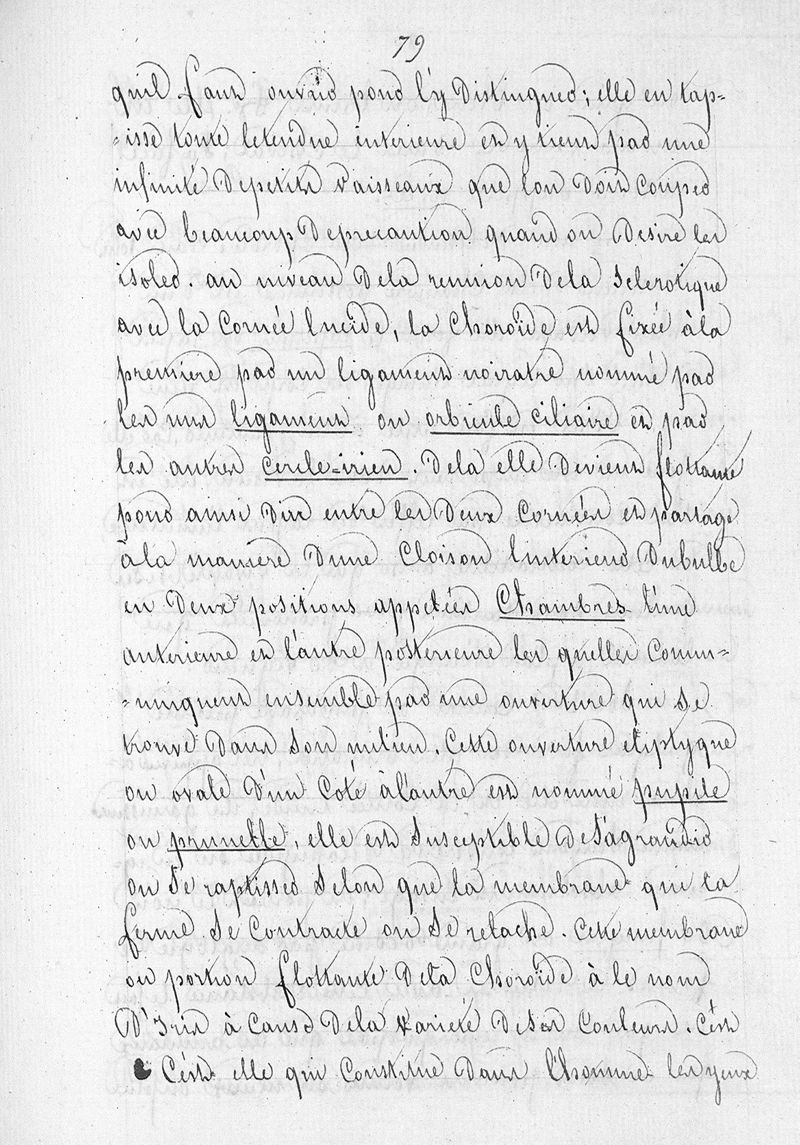 79
quil faut ouvrir pour l'y Distinguer; elle en tap-
-isse toute letendue interieure et y tient par une
infinité Depetits vaisseaux que lon Doit Couper
avec beaucoup Deprecaution quand on Desire les
isoler. au niveau Dela reunion Dela Sclerotique
avec la Cornée lucide, la Choroïde est fixée àla
premiere par un ligament noiratre nommé par
les uns ligament ou orbicule ciliaire et par
les autres cercle-irien. Dela elle Devient flottante
pour ainsi Dire entre les Deux Cornées et partage
àla maniere Dune Cloison linterieur Dubulbe
en Deux positions appelées Chambres l'une
anterieure et l'autre posterieure les quelles Comm-
-uniquent ensemble par une ouverture qui se
trouve Dans son milieu. Cette ouverture eliptyque
ou ovale D'un Coté à l'autre est nommé pupile
ou prunelle, elle est Susceptible DeS'agrandir
ou Se raptisser Selon que la membrane que la
forme Se Contracte ou Se relache. Cette membrane
ou portion flottante Dela Choroïde à le nom
D'Iris à Cause Dela varieté DeSes Couleurs. C'est
C'est elle qui Constitue Dans l'homme les yeux